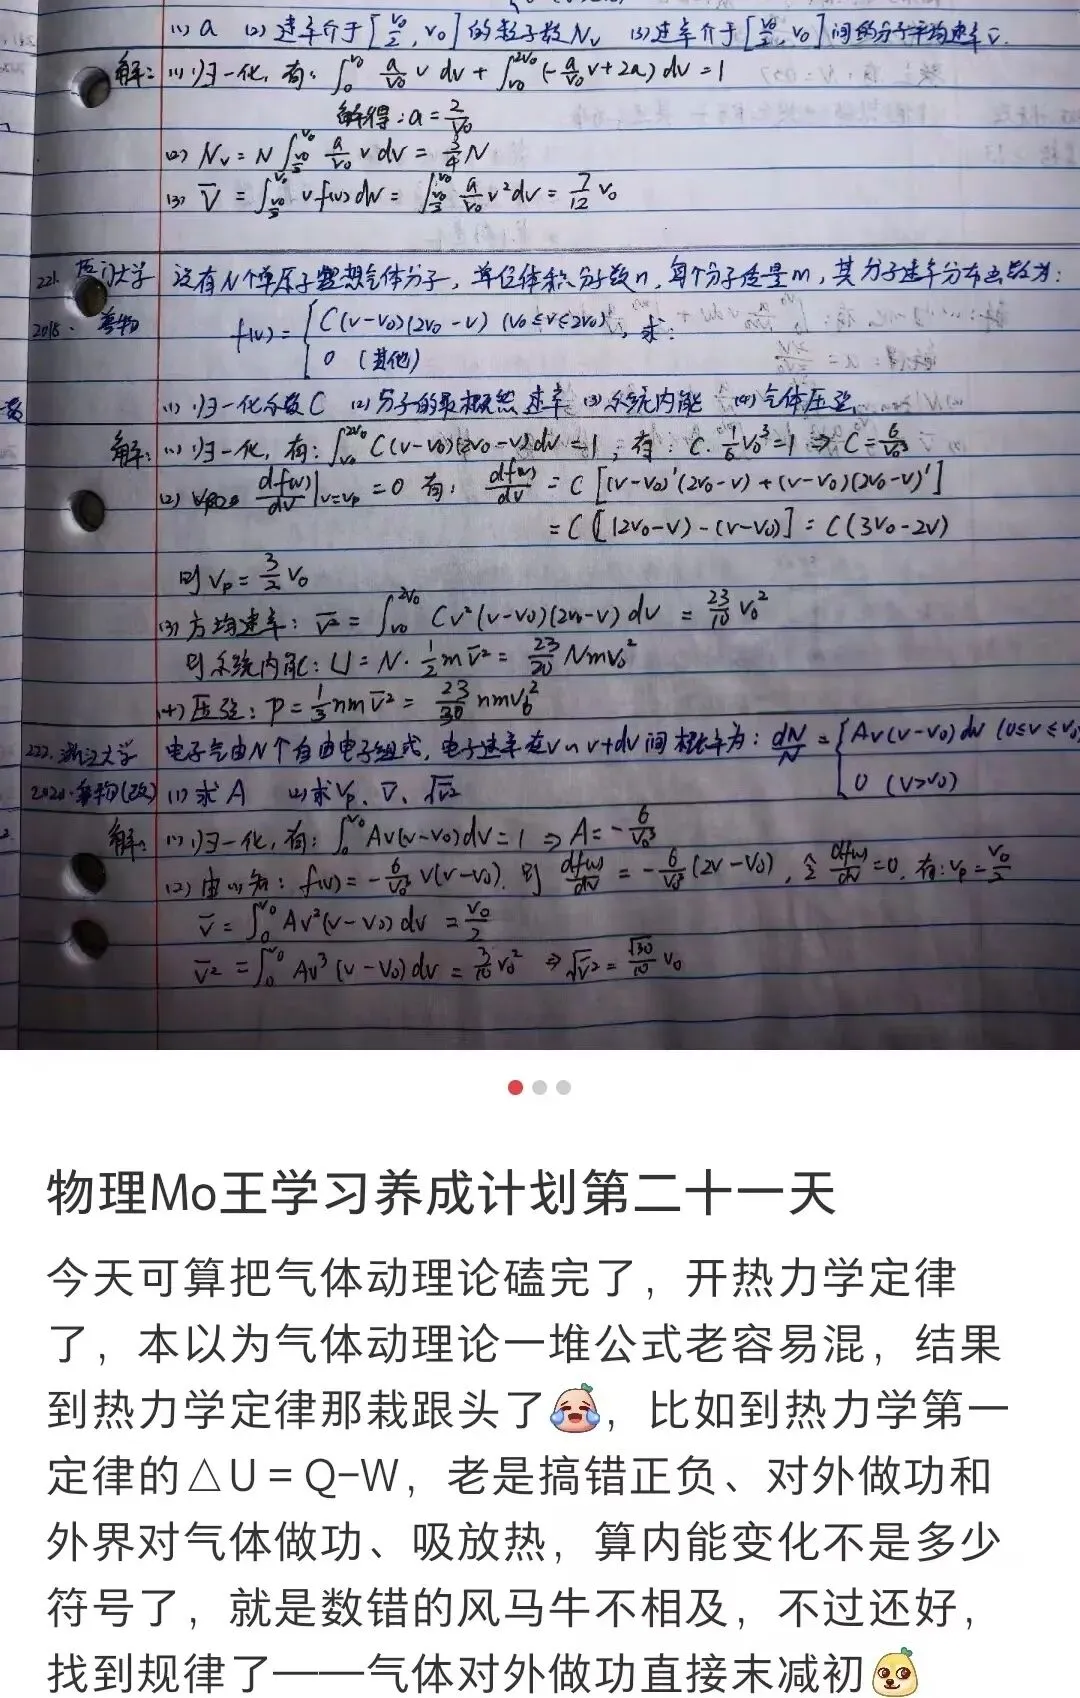 (1) a (2) 速率介于[v₀/2, v₀]的粒子数Nᵥ (3)速率介于[v₀/2, v₀]间的分子平均速率v̄.
解: (1) 归一化, 有: ∫₀^v₀ a/v₀ v dv + ∫_v₀^2v₀ (-a/v₀ v+2a) dv = 1
解得: a = 2/v₀
(2) Nᵥ = N ∫_{v₀/2}^{v₀} a/v₀ v dv = 3/4 N
(3) v̄ = ∫_{v₀/2}^{v₀} v f(v) dv = ∫_{v₀/2}^{v₀} a/v₀ v² dv = 7/12 v₀
221. 厦门大学 设有N个单原子理想气体分子, 单位体积分子数n, 每个分子质量m, 其分子速率分布函数为:
2018. 普物 f(v) = { C(v-v₀)(2v₀-v) (v₀≤v≤2v₀), 求:
0 (其他)
(1) 归一化分数C (2) 分子的最概然速率 (3) 系统内能 (4) 气体压强
解: (1) 归一化, 有: ∫_v₀^2v₀ C(v-v₀)(2v₀-v)dv = 1, 有: C·1/6 v₀³ = 1 ⇒ C = 6/v₀³
(2) df(v)/dv |v=vₚ = 0 有: df(v)/dv = C[(v-v₀)'(2v₀-v)+(v-v₀)(2v₀-v)']
= C[(2v₀-v)-(v-v₀)] = C(3v₀-2v)
则 vₚ = 3/2 v₀
(3) 方均速率: v̄² = ∫_v₀^2v₀ Cv²(v-v₀)(2v₀-v) dv = 23/10 v₀²
则系统内能: U = N·1/2 m v̄² = 23/20 Nmv₀²
(4) 压强: P = 1/3 nm v̄² = 23/30 nmv₀²
222. 浙江大学 电子气由N个自由电子组成, 电子速率在v~v+dv间概率为: dN/N = { Av(v-v₀)dv (0≤v≤v₀
2020. 普物(改) (1) 求A (2) 求vₚ、v̄、√v̄² 0 (v>v₀)
解: (1) 归一化, 有: ∫₀^v₀ Av(v-v₀)dv = 1 ⇒ A = -6/v₀³
(2) 由(1)知: f(v) = -6/v₀³ v(v-v₀), 则 df(v)/dv = -6/v₀³ (2v-v₀), 令 df(v)/dv = 0, 有: vₚ = v₀/2
v̄ = ∫₀^v₀ Av²(v-v₀) dv = v₀/2
v̄² = ∫₀^v₀ Av³(v-v₀) dv = 3/10 v₀² ⇒ √v̄² = √30/10 v₀
物理Mo王学习养成计划第二十一天
今天可算把气体动理论磕完了，开热力学定律
了，本以为气体动理论一堆公式老容易混，结果
到热力学定律那栽跟头了，比如到热力学第一
定律的△U＝Q-W，老是搞错正负、对外做功和
外界对气体做功、吸放热，算内能变化不是多少
符号了，就是数错的风马牛不相及，不过还好，
找到规律了——气体对外做功直接末减初